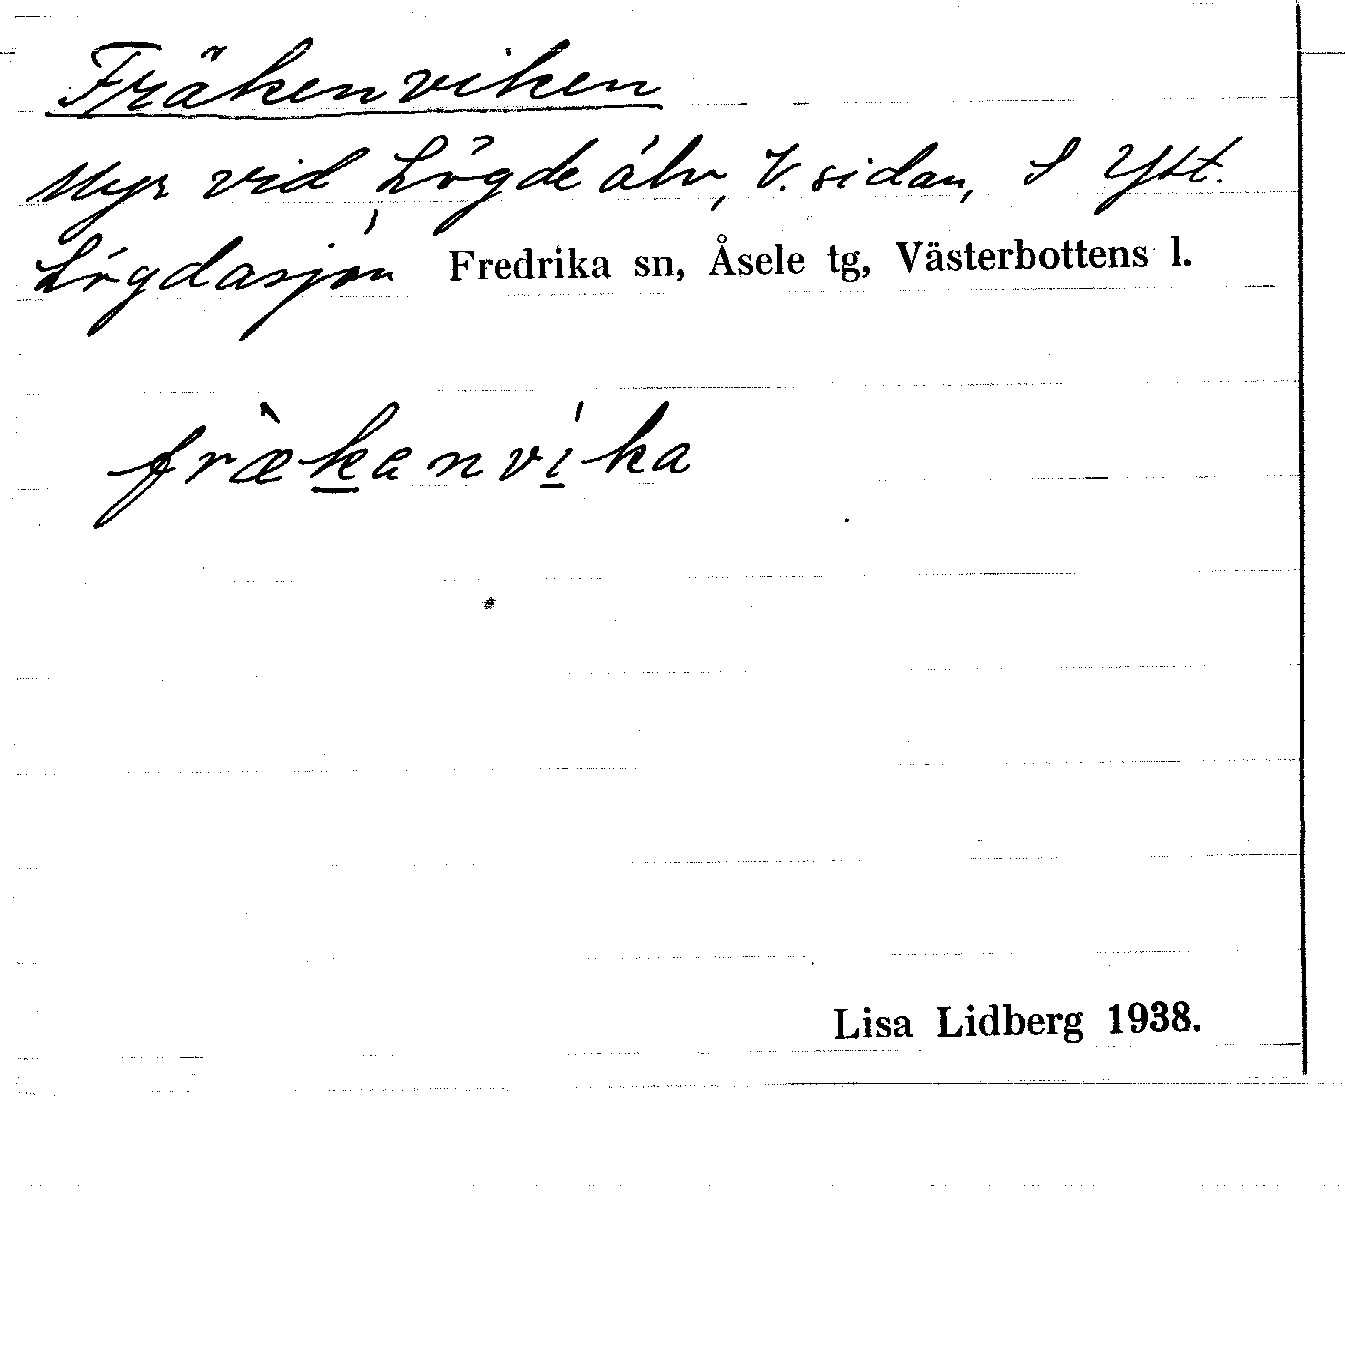 Fräkenviken
Myr vid Lögde älv, V. sidan, S Ytt.
Lögdasjön Fredrika sn, Åsele tg, Västerbottens l.
fræ̀kanvíka
Lisa Lidberg 1938.